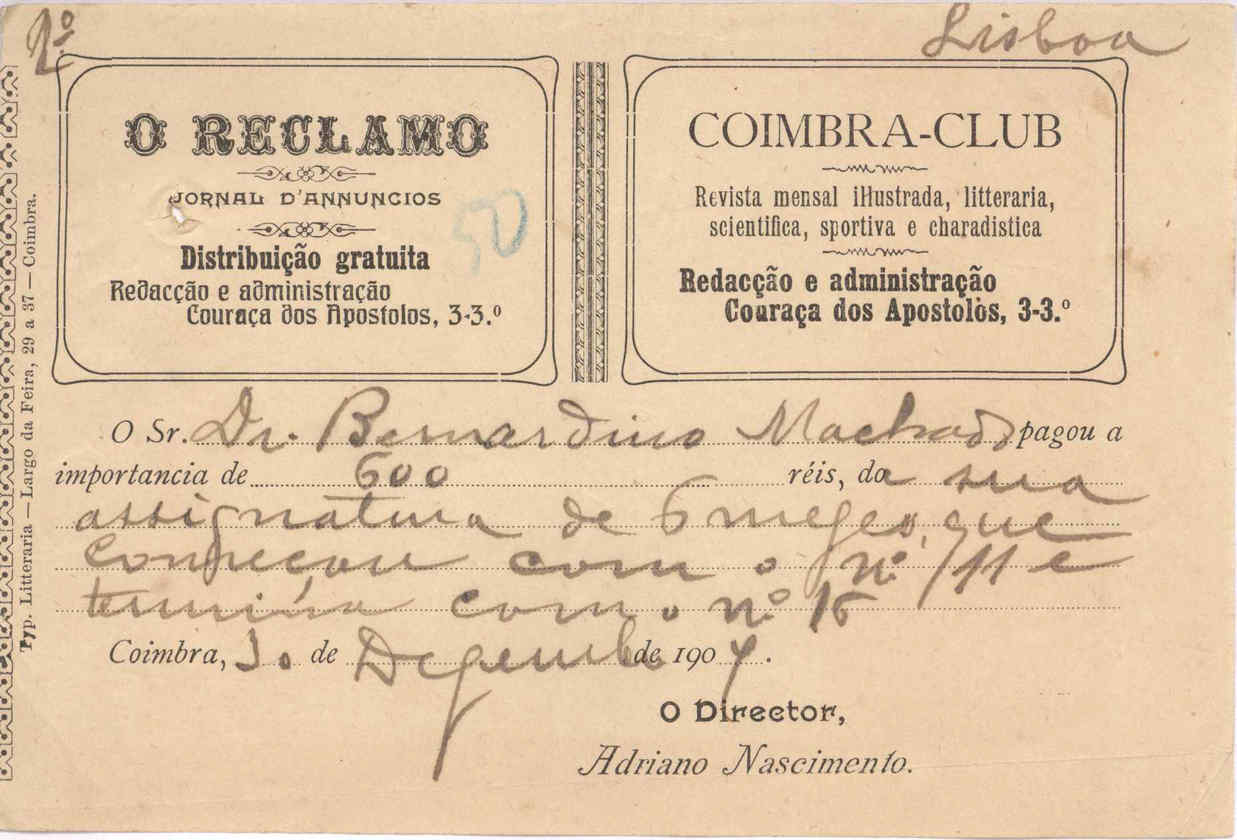 Nº
Lisboa
O RECLAMO
JORNAL D'ANNUNCIOS
50
Distribuição gratuita
Redacção e administração
Couraça dos Apostolos, 3-3.º
COIMBRA-CLUB
Revista mensal illustrada, litteraria,
scientifica, sportiva e charadistica
Redacção e administração
Couraça dos Apostolos, 3-3.º
Typ. Litteraria — Largo da Feira, 29 a 37 — Coimbra.
O Sr. Dr. Bernardino Machado pagou a
importancia de 600 réis, da sua
assignatura de 6 mezes, que
começou com o nº 11 e
termina com o nº 16
Coimbra, 30 de Dezembro de 190
O Director,
Adriano Nascimento.